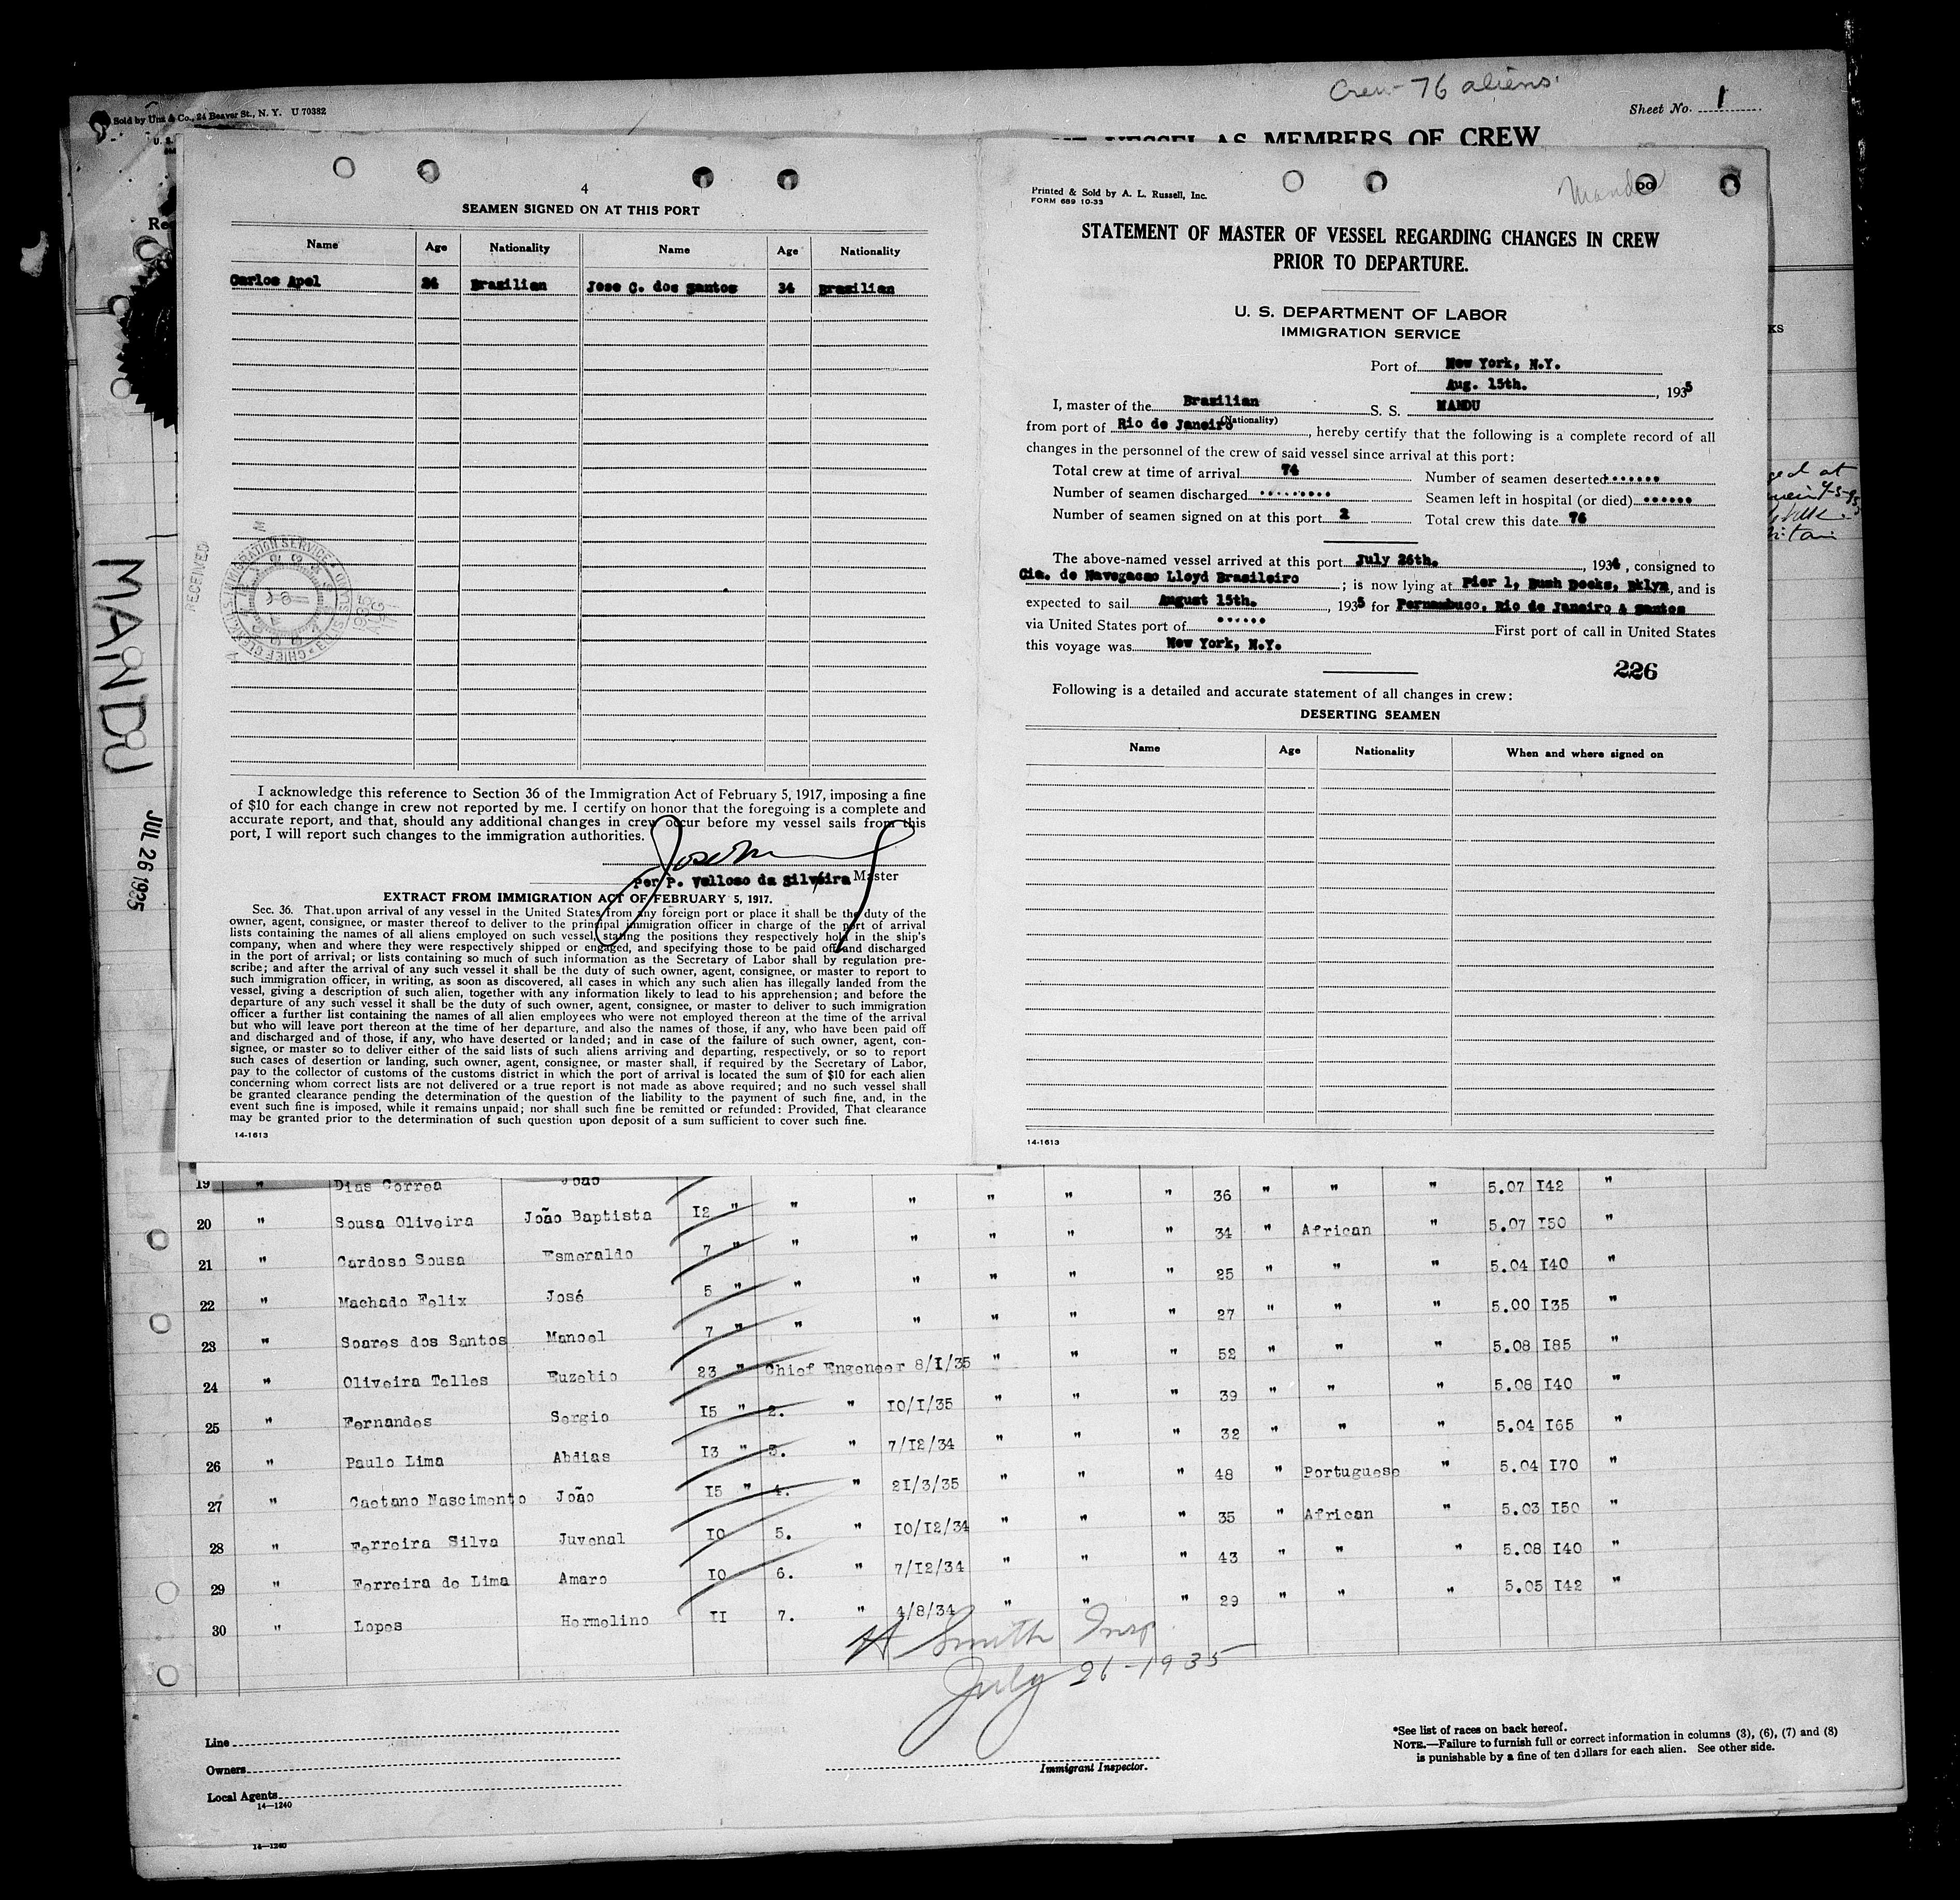 Crew- 76 aliens.
Sold by Unz & Co., 24 Beaver St., N. Y. U 70382
Sheet No. 1
AS MEMBERS OF CREW
MANDU
JUL 26 1935
4
SEAMEN SIGNED ON AT THIS PORT
Name Age Nationality Name Age Nationality
Carlos Apel 24 Brazilian Jose C. dos Santos 34 Brazilian
RECEIVED
I acknowledge this reference to Section 36 of the Immigration Act of February 5, 1917, imposing a fine
of $10 for each change in crew not reported by me. I certify on honor that the foregoing is a complete and
accurate report, and that, should any additional changes in crew occur before my vessel sails from this
port, I will report such changes to the immigration authorities.
Per P. Velloso da Silveira Master
EXTRACT FROM IMMIGRATION ACT OF FEBRUARY 5, 1917.
Sec. 36. That upon arrival of any vessel in the United States from any foreign port or place it shall be the duty of the
owner, agent, consignee, or master thereof to deliver to the principal immigration officer in charge of the port of arrival
lists containing the names of all aliens employed on such vessel, stating the positions they respectively hold in the ship's
company, when and where they were respectively shipped or engaged, and specifying those to be paid off and discharged
in the port of arrival; or lists containing so much of such information as the Secretary of Labor shall by regulation pre-
scribe; and after the arrival of any such vessel it shall be the duty of such owner, agent, consignee, or master to report to
such immigration officer, in writing, as soon as discovered, all cases in which any such alien has illegally landed from the
vessel, giving a description of such alien, together with any information likely to lead to his apprehension; and before the
departure of any such vessel it shall be the duty of such owner, agent, consignee, or master to deliver to such immigration
officer a further list containing the names of all alien employees who were not employed thereon at the time of the arrival
but who will leave port thereon at the time of her departure, and also the names of those, if any, who have been paid off
and discharged and of those, if any, who have deserted or landed; and in case of the failure of such owner, agent, con-
signee, or master so to deliver either of the said lists of such aliens arriving and departing, respectively, or so to report
such cases of desertion or landing, such owner, agent, consignee, or master shall, if required by the Secretary of Labor,
pay to the collector of customs of the customs district in which the port of arrival is located the sum of $10 for each alien
concerning whom correct lists are not delivered or a true report is not made as above required; and no such vessel shall
be granted clearance pending the determination of the question of the liability to the payment of such fine, and, in the
event such fine is imposed, while it remains unpaid; nor shall such fine be remitted or refunded: Provided, That clearance
may be granted prior to the determination of such question upon deposit of a sum sufficient to cover such fine.
14-1613
Mandu
Printed & Sold by A. L. Russell, Inc.
FORM 689 10-33
STATEMENT OF MASTER OF VESSEL REGARDING CHANGES IN CREW
PRIOR TO DEPARTURE.
U. S. DEPARTMENT OF LABOR
IMMIGRATION SERVICE
Port of New York, N.Y.
Aug. 15th. , 1935
I, master of the Brazilian S. S. MANDU
(Nationality)
from port of Rio de Janeiro , hereby certify that the following is a complete record of all
changes in the personnel of the crew of said vessel since arrival at this port:
Total crew at time of arrival 74 Number of seamen deserted
Number of seamen discharged Seamen left in hospital (or died)
Number of seamen signed on at this port 2 Total crew this date 76
The above-named vessel arrived at this port July 26th. , 1934 , consigned to
Cia. de Navegacao Lloyd Brasileiro ; is now lying at Pier 1, Bush Docks, Bklyn, and is
expected to sail August 15th. , 1935 for Pernambuco, Rio de Janeiro & Santos
via United States port of First port of call in United States
this voyage was New York, N.Y.
226
Following is a detailed and accurate statement of all changes in crew:
DESERTING SEAMEN
Name Age Nationality When and where signed on
14-1613
19 " Dias Correa João " " " " " 36 " " " 5.07 I42 "
20 " Sousa Oliveira João Baptista I2 " " " " " " 34 " African " 5.07 I50 "
21 " Cardoso Sousa Esmeraldo 7 " " " " " " 25 " " " 5.04 I40 "
22 " Machado Felix José 5 " " " " " " 27 " " " 5.00 I35 "
23 " Soares dos Santos Manoel 7 " " " " " " 52 " " " 5.08 I85 "
24 " Oliveira Telles Euzebio 23 " Chief Engeneer 8/I/35 " " " 39 " " " 5.08 I40 "
25 " Fernandes Sergio I5 " 2. " I0/I/35 " " " 32 " " " 5.04 I65 "
26 " Paulo Lima Abdias I3 " 3. " 7/I2/34 " " " 48 " Portuguese " 5.04 I70 "
27 " Caetano Nascimento João I5 " 4. " 2I/3/35 " " " 35 " African " 5.03 I50 "
28 " Ferreira Silva Juvenal I0 5. " I0/I2/34 " " " 43 " " " 5.08 I40 "
29 " Ferreira de Lima Amaro I0 6. " 7/I2/34 " " " 29 " " " 5.05 I42 "
30 " Lopes Hermelino II 7. " 4/8/34
H Smith Insp
July 26-1935
Line
Owners
Local Agents
14-1240
Immigrant Inspector.
*See list of races on back hereof.
NOTE.—Failure to furnish full or correct information in columns (3), (6), (7) and (8)
is punishable by a fine of ten dollars for each alien. See other side.
14-1240